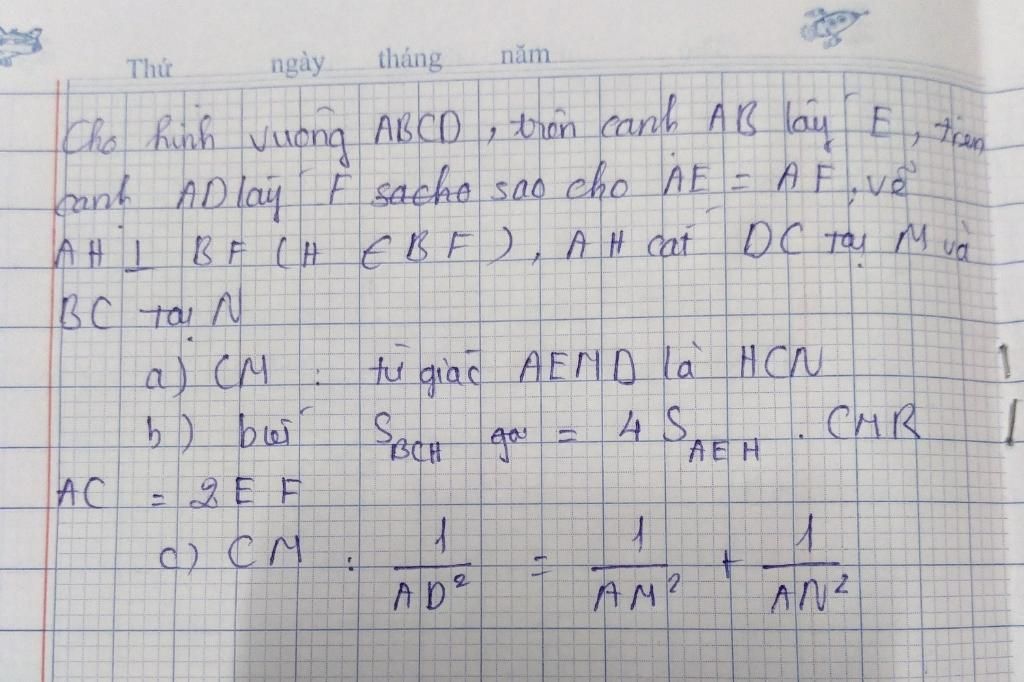 Thứ ngày tháng năm
Cho hình vuông ABCD, trên cạnh AB lấy E, trên
cạnh AD lấy F sacho sao cho AE = AF, vẽ
AH ⊥ BF (H ∈ BF), AH cắt DC tại M và
BC tại N
a) CM : tứ giác AEMD là HCN
b) biết S_BCH gấ = 4 S_AEH . CMR
AC = 2EF
c) CM : 1/AD² = 1/AM² + 1/AN²